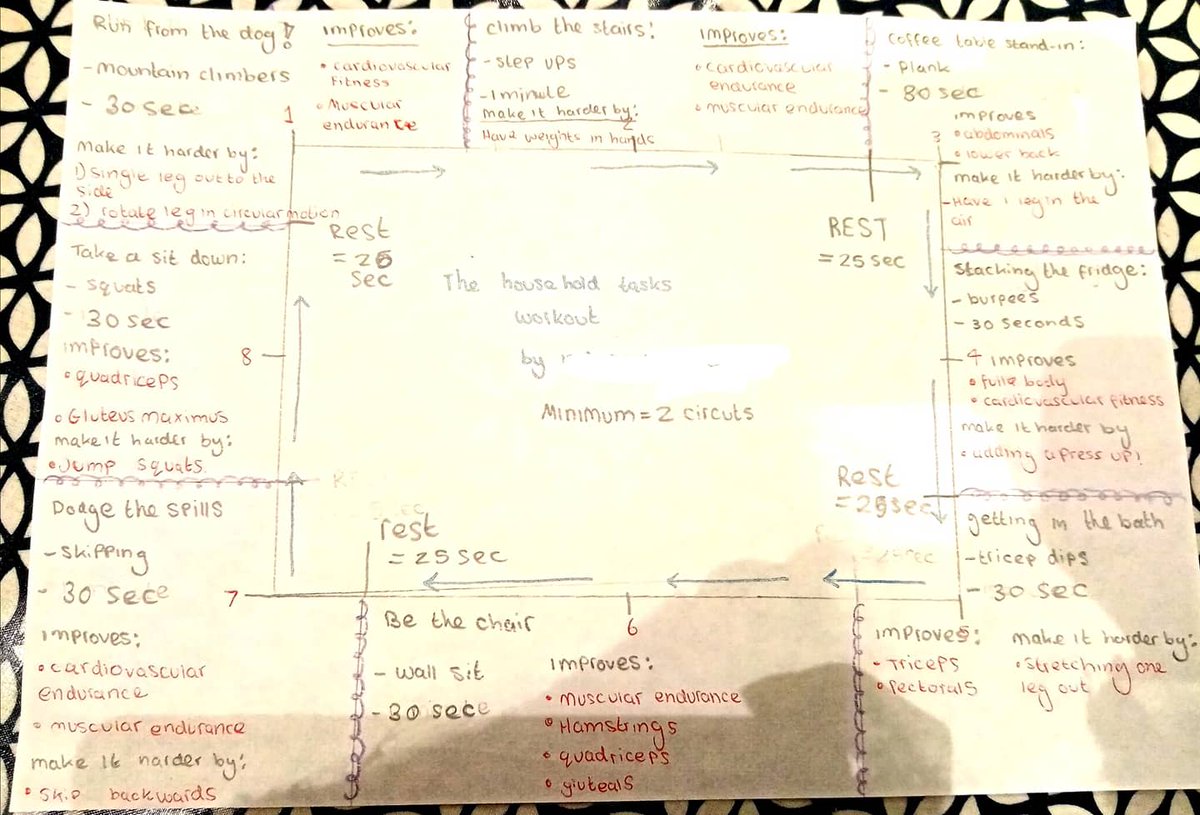 Run from the dog!
- Mountain climbers
- 30 sec
1
improves:
• cardiovascular
fitness
• Muscular
endurance
make it harder by:
1) single leg out to the
side
2) rotate leg in circular motion
climb the stairs:
- step ups
- 1 minute
make it harder by:
Have weights in hands
2
improves:
• cardiovascular
endurance
• muscular endurance
coffee table stand-in:
- Plank
- 30 sec
improves
3
• abdominals
• lower back
make it harder by:
- Have 1 leg in the
air
Stacking the fridge:
- burpees
- 30 seconds
4 improves
• full body
• cardiovascular fitness
make it harder by
• adding a press up!
getting in the bath
- tricep dips
- 30 sec
improves:
• Triceps
• Pectorals
make it harder by:
• Stretching one
leg out
Be the chair
6
- wall sit
- 30 sec
improves:
• muscular endurance
• Hamstrings
• quadriceps
• gluteals
Dodge the spills
- skipping
- 30 sec
7
improves:
• cardiovascular
endurance
• muscular endurance
make it harder by:
• Skip backwards
Take a sit down:
- squats
- 30 sec
improves:
8
• quadriceps
• Gluteus maximus
make it harder by:
• Jump squats
Rest
= 25
sec
REST
= 25 sec
The household tasks
workout
by
Minimum = 2 circuts
Rest
= 25 sec
rest
= 25 sec